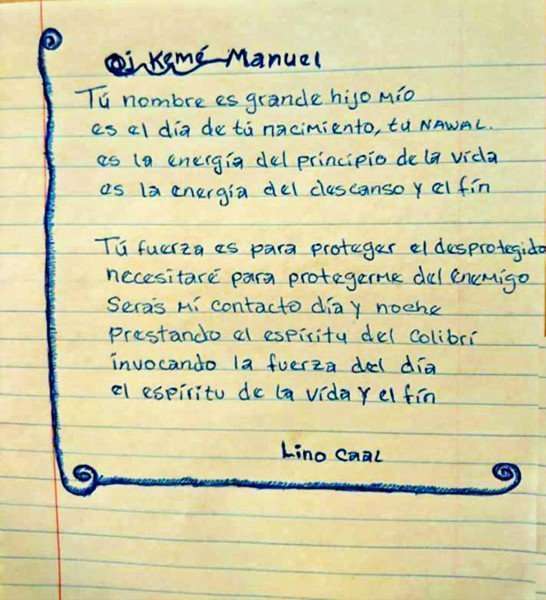 Oj Kemé Manuel
Tú nombre es grande hijo mío
es el día de tú nacimiento, tu NAWAL.
es la energía del principio de la vida
es la energía del descanso y el fín
Tú fuerza es para proteger el desprotegido
necesitaré para protegerme del enemigo
Serás mi contacto día y noche
Prestando el espíritu del colibrí
invocando la fuerza del día
el espíritu de la vida y el fín
Lino Caal